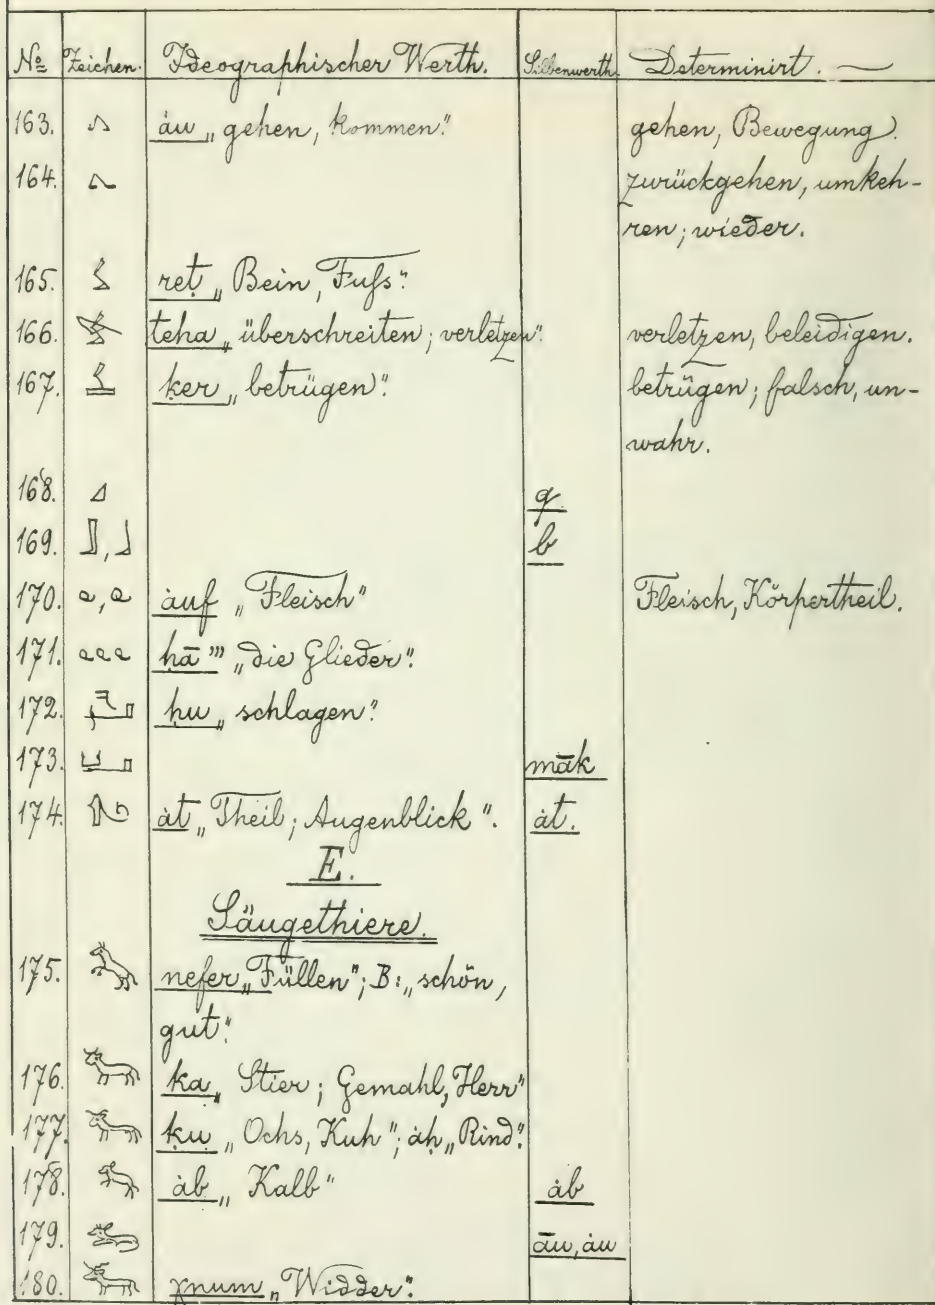 No Zeichen. Ideographischer Werth. Silbenwerth. Determinirt. —
163. àu „gehen, kommen." gehen, Bewegung.
164. zurückgehen, umkeh-
ren; wieder.
165. reṭ „Bein, Fuſs."
166. teha „überschreiten; verletzen". verletzen, beleidigen.
167. ḳer „betrügen". betrügen; falsch, un-
wahr.
168. q.
169. , b
170. , àuf „Fleisch" Fleisch, Körpertheil.
171. hā''' „die Glieder".
172. hu „schlagen".
173. māk
174. àt „Theil; Augenblick". àt.
E.
Säugethiere.
175. nefer „Füllen"; B: „schön,
gut".
176. ka „Stier; Gemahl, Herr"
177. ḳu „Ochs, Kuh"; àḥ „Rind".
178. àb „Kalb" àb
179. āu, àu
180. χnum „Widder".